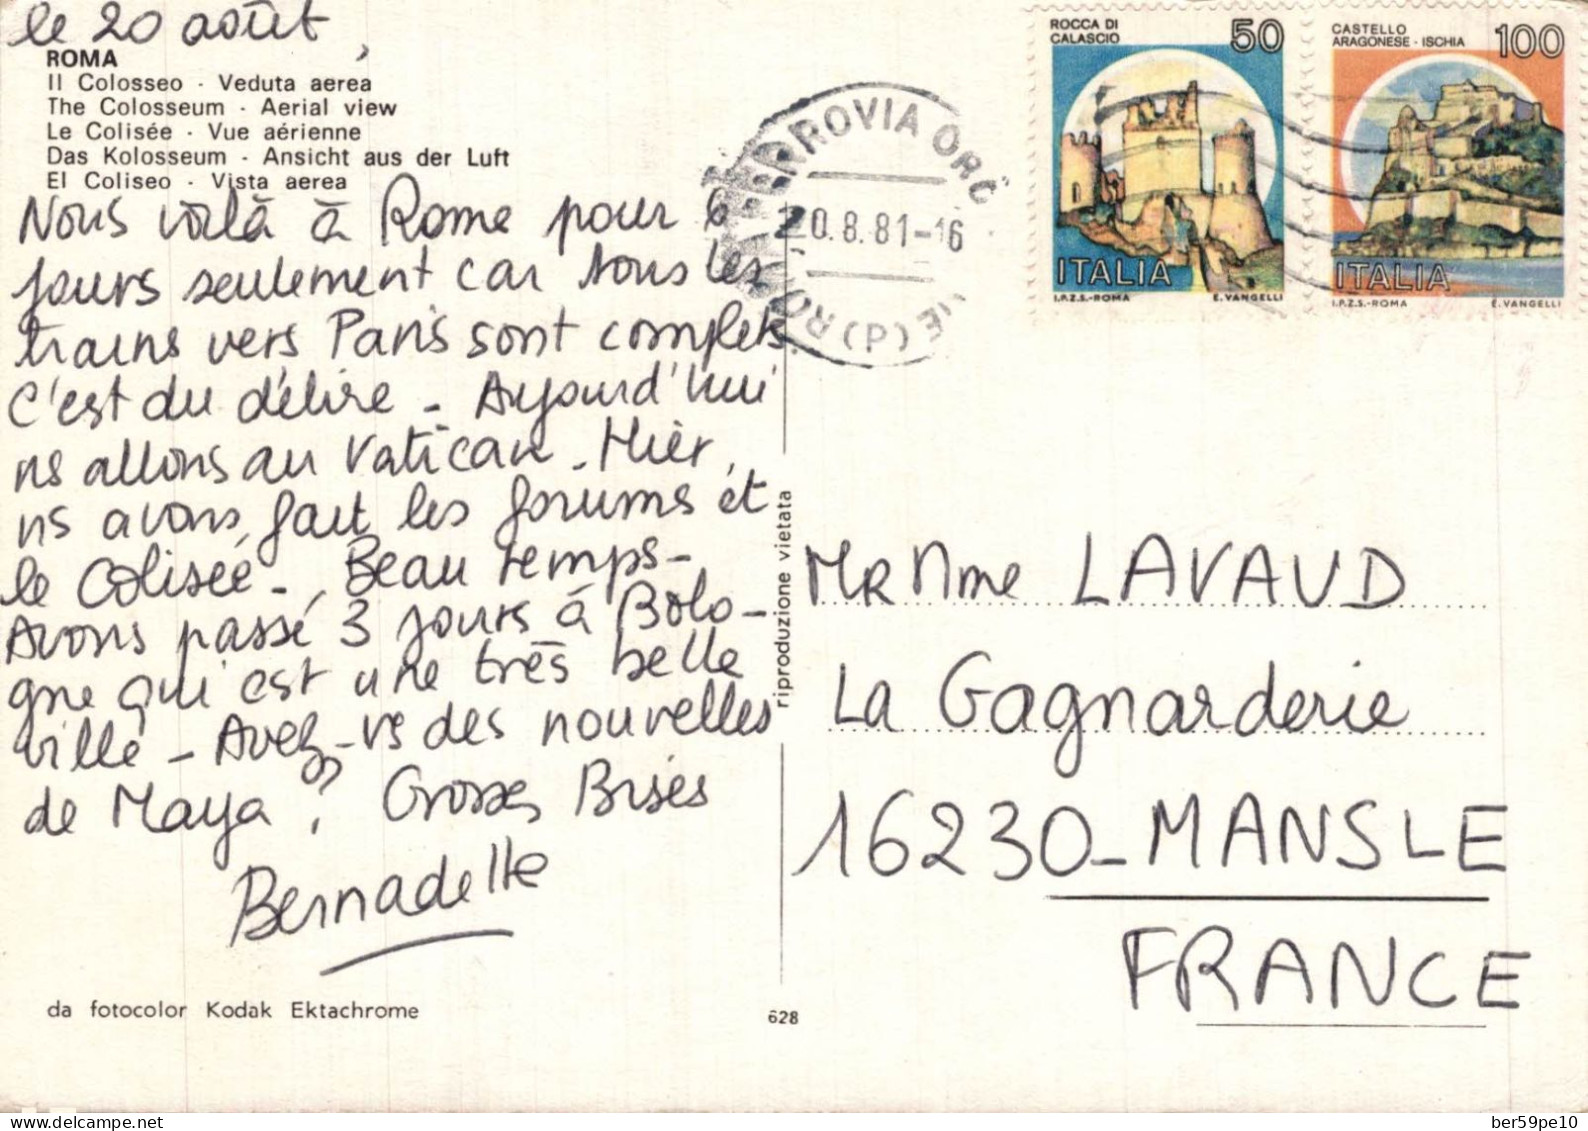 le 20 août,
ROMA
Il Colosseo - Veduta aerea
The Colosseum - Aerial view
Le Colisée - Vue aérienne
Das Kolosseum - Ansicht aus der Luft
El Coliseo - Vista aerea
Nous voilà à Rome pour 6
jours seulement car tous les
trains vers Paris sont complets
C'est du délire - Aujourd'hui
ns allons au Vatican. Hier,
ns avons fait les forums et
le Colisée -, Beau temps -
Avons passé 3 jours à Bolo-
gne qui est une très belle
ville - Avez-vs des nouvelles
de Maya ? Grosses Bises
Bernadette
da fotocolor Kodak Ektachrome
628
riproduzione vietata
FERROVIA ORD
20.8.81-16
ROMA
(P)
ROCCA DI
CALASCIO
50
ITALIA
I.P.Z.S.-ROMA
E. VANGELLI
CASTELLO
ARAGONESE - ISCHIA
100
ITALIA
I.P.Z.S.-ROMA
E. VANGELLI
MR Mme LAVAUD
La Gagnarderie
16230 - MANSLE
FRANCE
ber59pe10